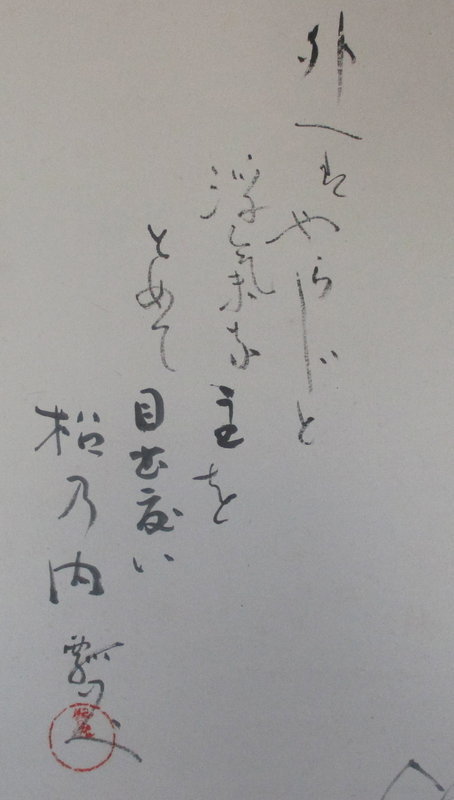 外へはやらじと
浮氣な主を
とめて目出度い
松乃内